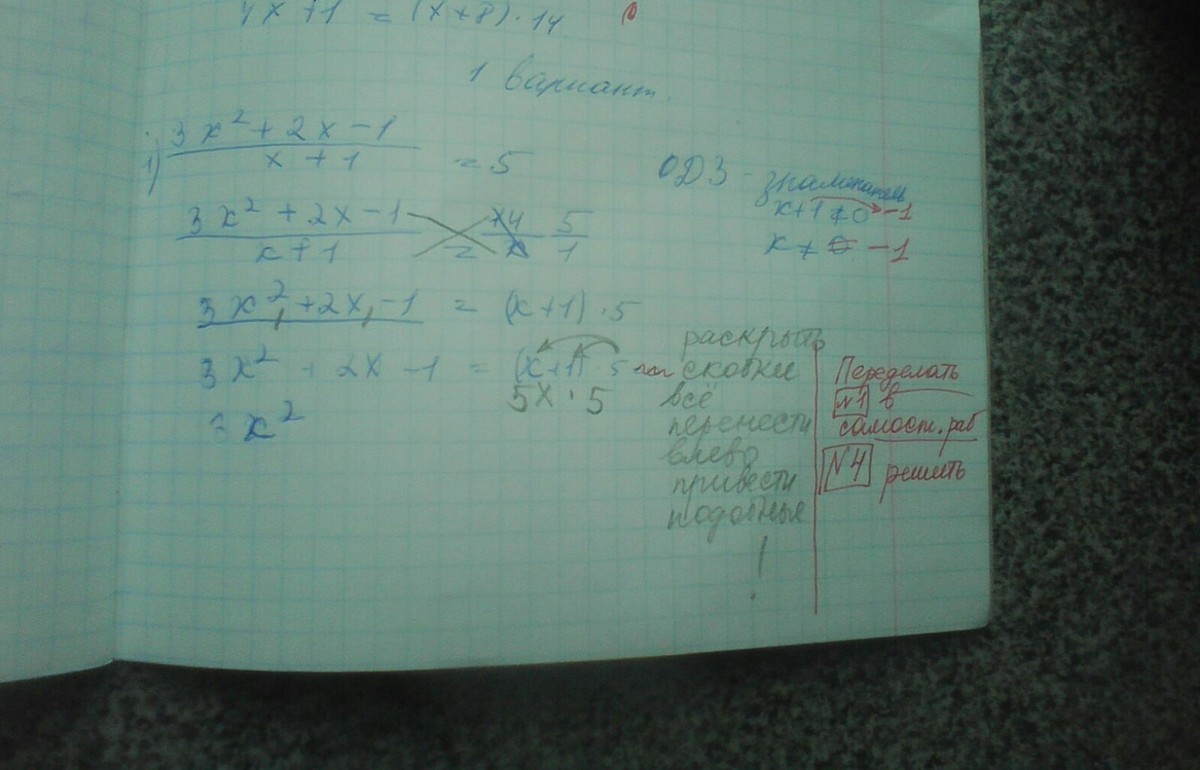 4x+1 = (x+8)·14
1 вариант
1) 3x²+2x-1
x+1
= 5
ОДЗ - знаменатель
x+1≠0 -1
x≠0 -1
3x²+2x-1
x+1
=
x4 5
x 1
3x²+2x-1 = (x+1)·5
3x² + 2x - 1 = (x+1) 5
5x · 5
3x²
раскрыть
скобки
всё
перенести
влево
привести
подобные
!
Переделать
N1 в
самост. раб
N4 решить